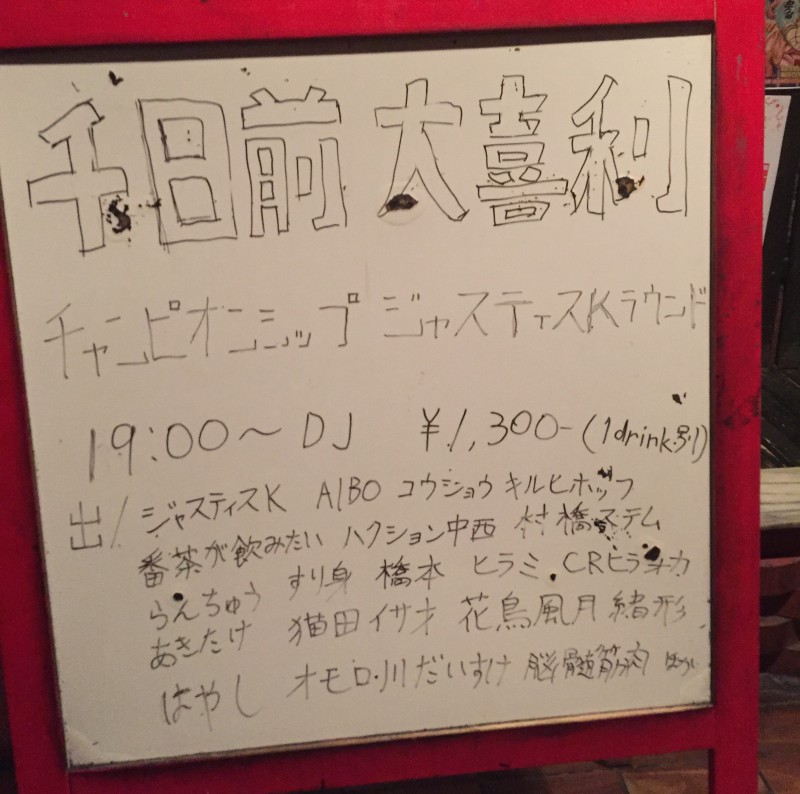 千日前 大喜利
チャンピオンシップ ジャスティスKラウンド
19:00〜DJ ¥1,300-(1drink別)
出/ ジャスティスK AIBO コウショウ キルヒホッフ
番茶が飲みたい ハクション中西 村橋ステム
らんちゅう すり身 橋本 ヒラミ. CRヒラオカ
あきたけ 猫田イサオ 花鳥風月 緒形
はやし オモロ川だいすけ 脳髄筋肉